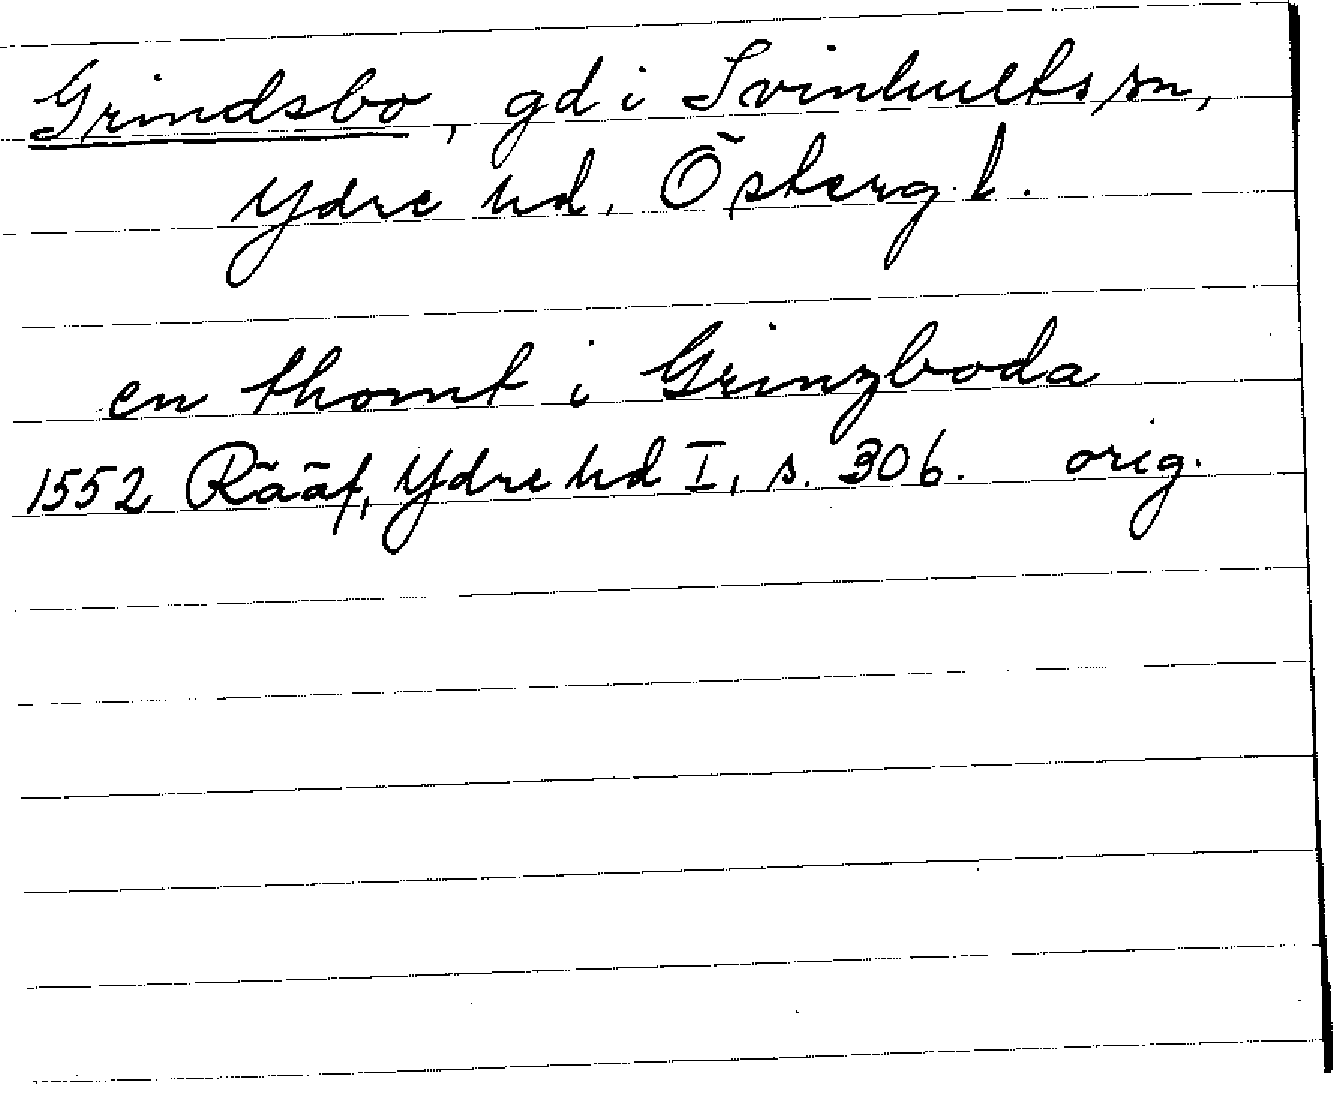 Grindsbo, gd i Svinhults sn,
Ydre hd. Österg. l.
en thomt i Grinzboda
1552 Rääf, Ydre hd I, s. 306. orig.